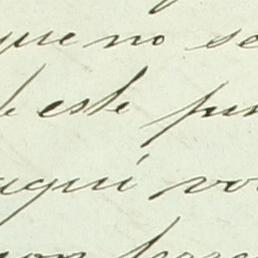 que no se
de este pun
aqui vo